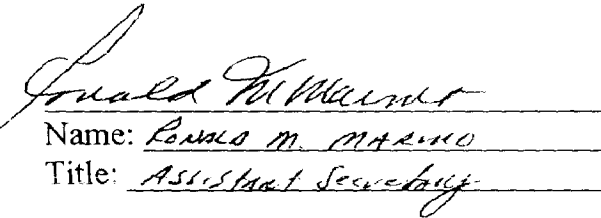 Ronald M Marino
Name: RONALD M. MARINO
Title: Assistant Secretary